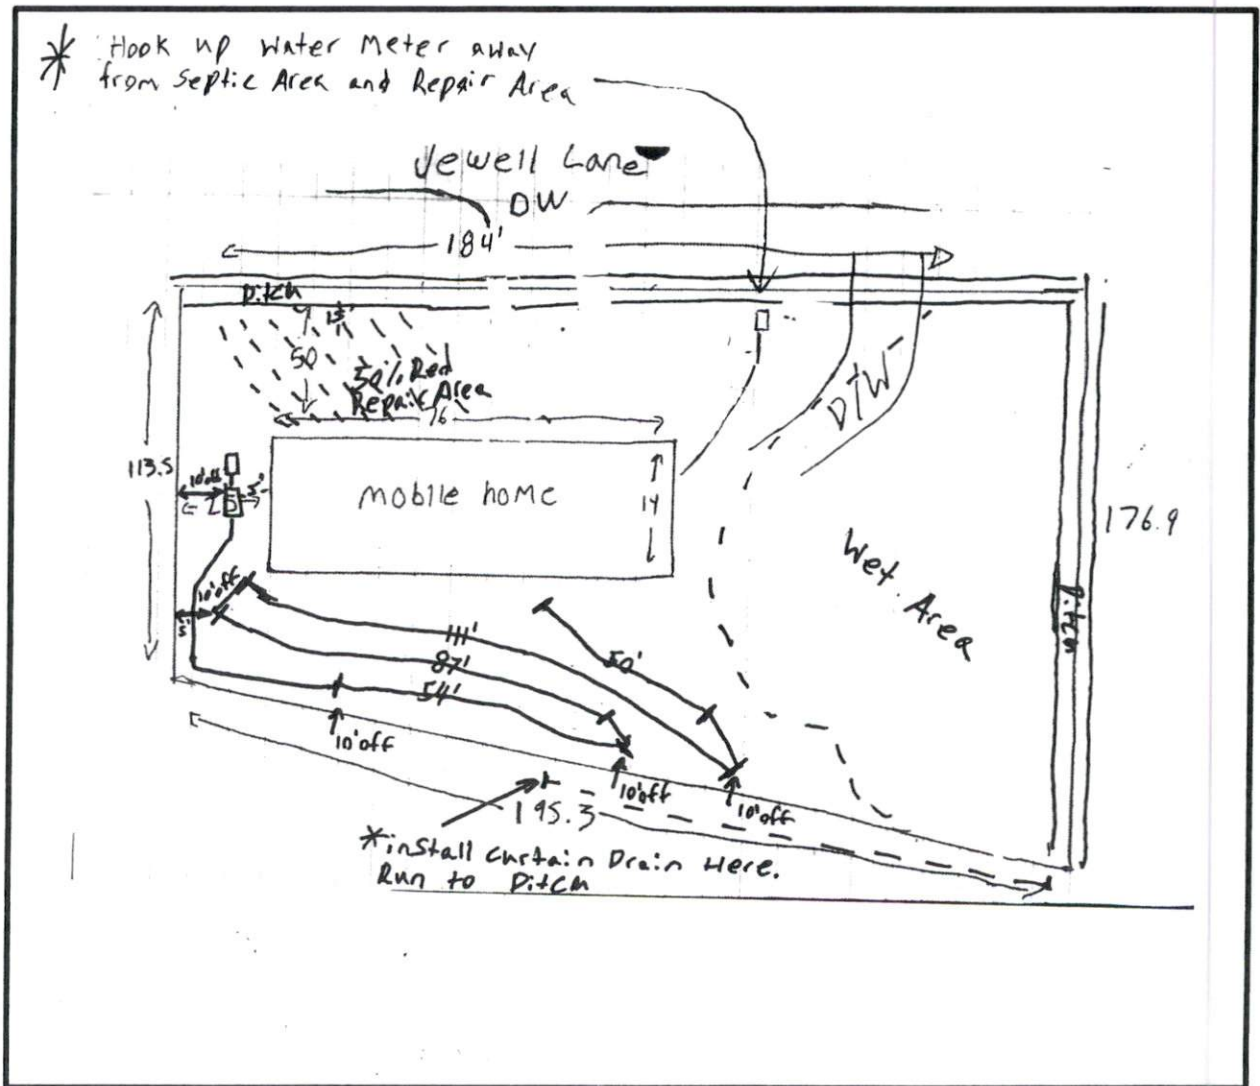 * Hook up water Meter away
from Septic Area and Repair Area
Jewell Lane
DW
184'
Ditch
15'
50
50% Red
Repair Area
76
113.5
10'off
5'
mobile home
14
D/W
176.9
Wet Area
Ditch
10'off
5'
111'
87'
54'
50'
10'off
10'off
10'off
195.3
*install Curtain Drain Here.
Run to Ditch